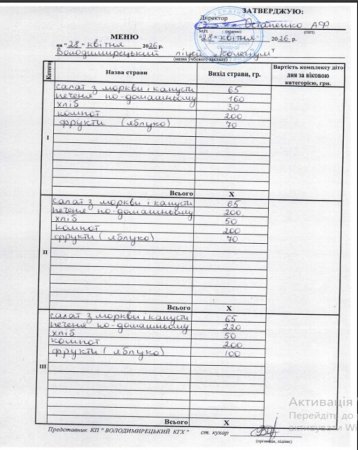 ЗАТВЕРДЖУЮ:
Директор Остапенко А.Ф
(підпис) (ПІП)
"28" квітня 2026р.
МЕНЮ
на "28" квітня 2026р.
Володимирецький ліцей "Колегіум"
(назва учбового закладу)
Назва страви
Вихід страви, гр.
Вартість комплексу діто дня за віковою категорією, грн.
I
салат з моркви і капусти 65
печеня по-домашньому 160
хліб 30
компот 200
фрукти (яблуко) 70
Всього X
II
салат з моркви і капусти 65
печеня по-домашньому 200
хліб 50
компот 200
фрукти (яблуко) 70
Всього X
III
салат з моркви і капусти 65
печеня по-домашньому 220
хліб 50
компот 200
фрукти (яблуко) 100
Всього X
Представник КП "ВОЛОДИМИРЕЦЬКИЙ КГХ" ст. кухар
(прізвище, підпис)
Активація
Перейдіть до
активувати Wi